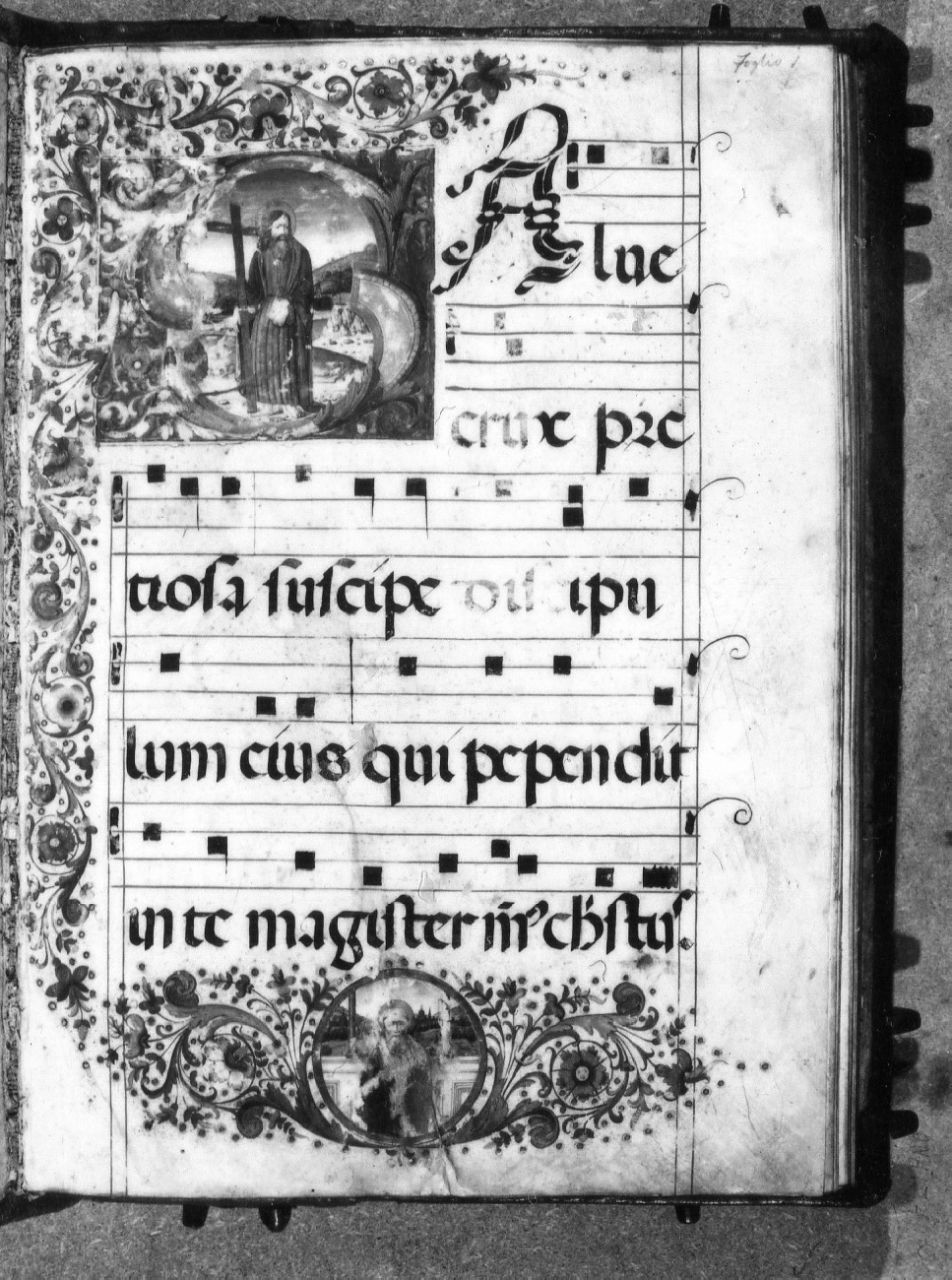 Foglio 1
SAlue
crux pre
tiosa suscipe discipu
lum eius qui pependit
in te magister nr̄ chr̄istus.